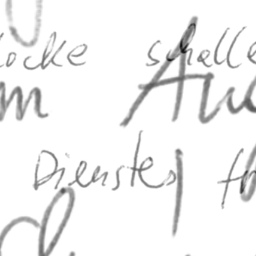 ocke schalle
m Au
Dienstes f